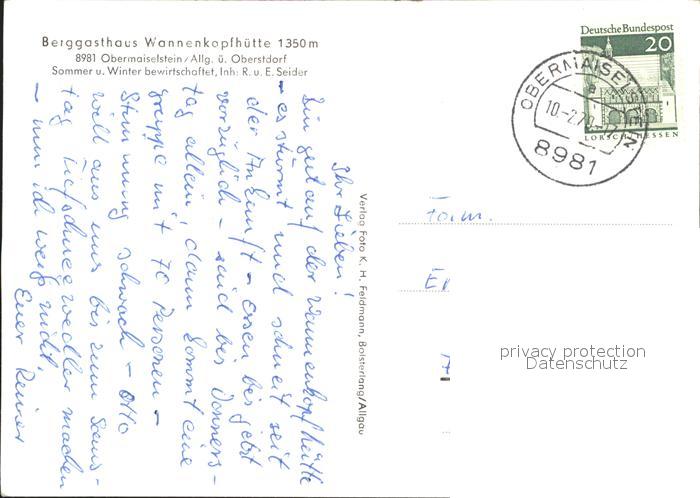 Berggasthaus Wannenkopfhütte 1350 m
8981 Obermaiselstein/Allg. ü. Oberstdorf
Sommer u. Winter bewirtschaftet, Inh: R. u. E. Seider
Ihr Lieben!
Bin gut auf der Wannenkopfhütte
- es stürmt und schneit seit
der Ankunft - Essen bis jetzt
vorzüglich - sind bis Donners-
tag allein, dann kommt eine
Gruppe mit 70 Personen -
Stimmung schwach - Otto
will aus uns bis zum Sams-
tag Tiefschneewedler machen
- nun ich weiß nicht.
Euer Reiner
Verlag Foto K. H. Feldmann, Bolsterlang/Allgäu
Deutsche Bundespost
20
LORSCH/HESSEN
OBERMAISELSTEIN
a
10.-2.70
8981
Fam.
privacy protection
Datenschutz